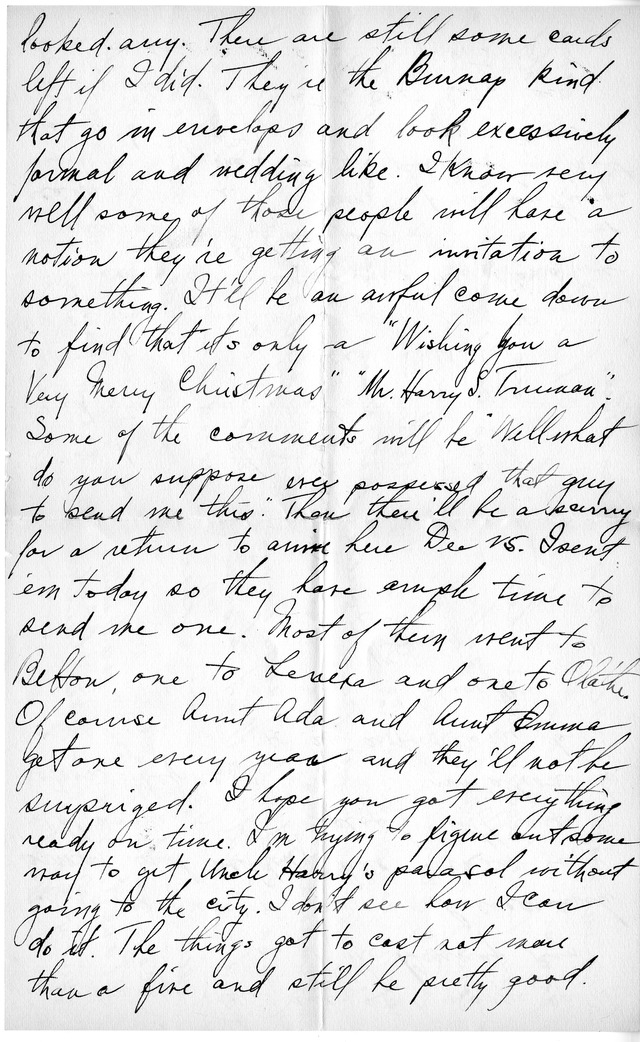 looked any. There are still some cards
left if I did. They're the Burnap kind
that go in envelops and look excessively
formal and wedding like. I know very
well some of those people will have a
notion they're getting an invitation to
something. It'll be an awful come down
to find that it's only a "Wishing You a
Very Merry Christmas" "Mr. Harry S. Truman".
Some of the comments will be "Well what
do you suppose ever possessed that guy
to send me this." Then there'll be a scurry
for a return to arrive here Dec 25. I sent
'em today so they have ample time to
send me one. Most of them went to
Belton, one to and one to Olathe.
Of course Aunt Ada and Aunt Emma
get one every year and they'll not be
surprized. I hope you got everything
ready on time. I'm trying to figure out some
way to get Uncle Harry's parasol without
going to the city. I don't see how I can
do it. The things got to cost not more
than a five and still be pretty good.